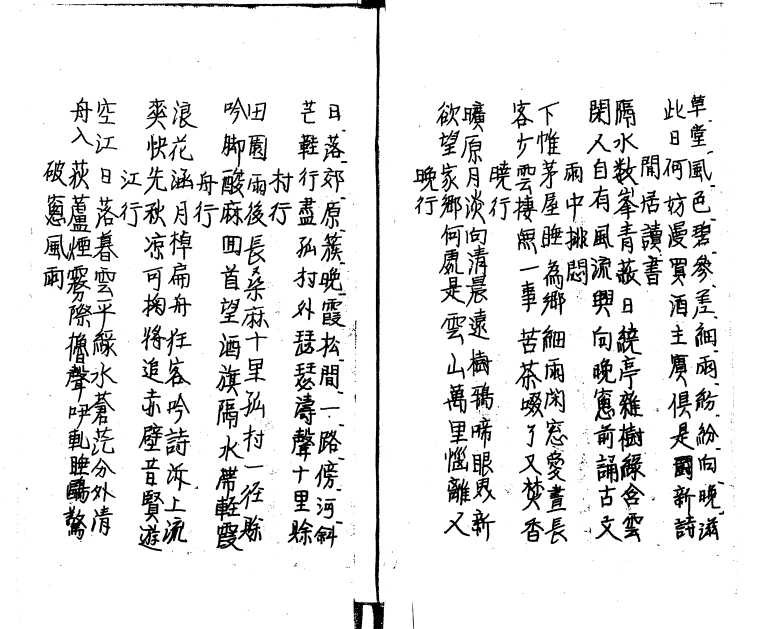 草堂風色碧參差細雨紛紛向晚滋
此日何妨漫買酒主賓俱是園新詩
閒居讀書
隔水数峯青蔽日繞亭雜樹綠含雲
閑人自有風流興向晚窓前誦古文
雨中排悶
下帷茅屋睡為鄉細雨閑窓愛晝長
客少雲棲無一事苦茶啜了又焚香
曉行
曠原月淡向清晨遠樹鴉啼眼界新
欲望家鄉何處是雲山萬里惱離又
晚行
日落郊原簇晚霞松間一路傍河斜
芒鞋行盡孤村外瑟瑟濤聲十里賒
村行
田園雨後長桑麻十里孤村一径賒
吟脚酸麻回首望酒旗隔水帶軽霞
舟行
浪花涵月棹扁舟狂客吟詩泝上流
爽快先秋凉可掬将追赤壁昔賢遊
江行
空江日落暮雲平綠水蒼茫分外清
舟入荻蘆煙霧際櫓聲咿軋睡鷗驚
破窓風雨